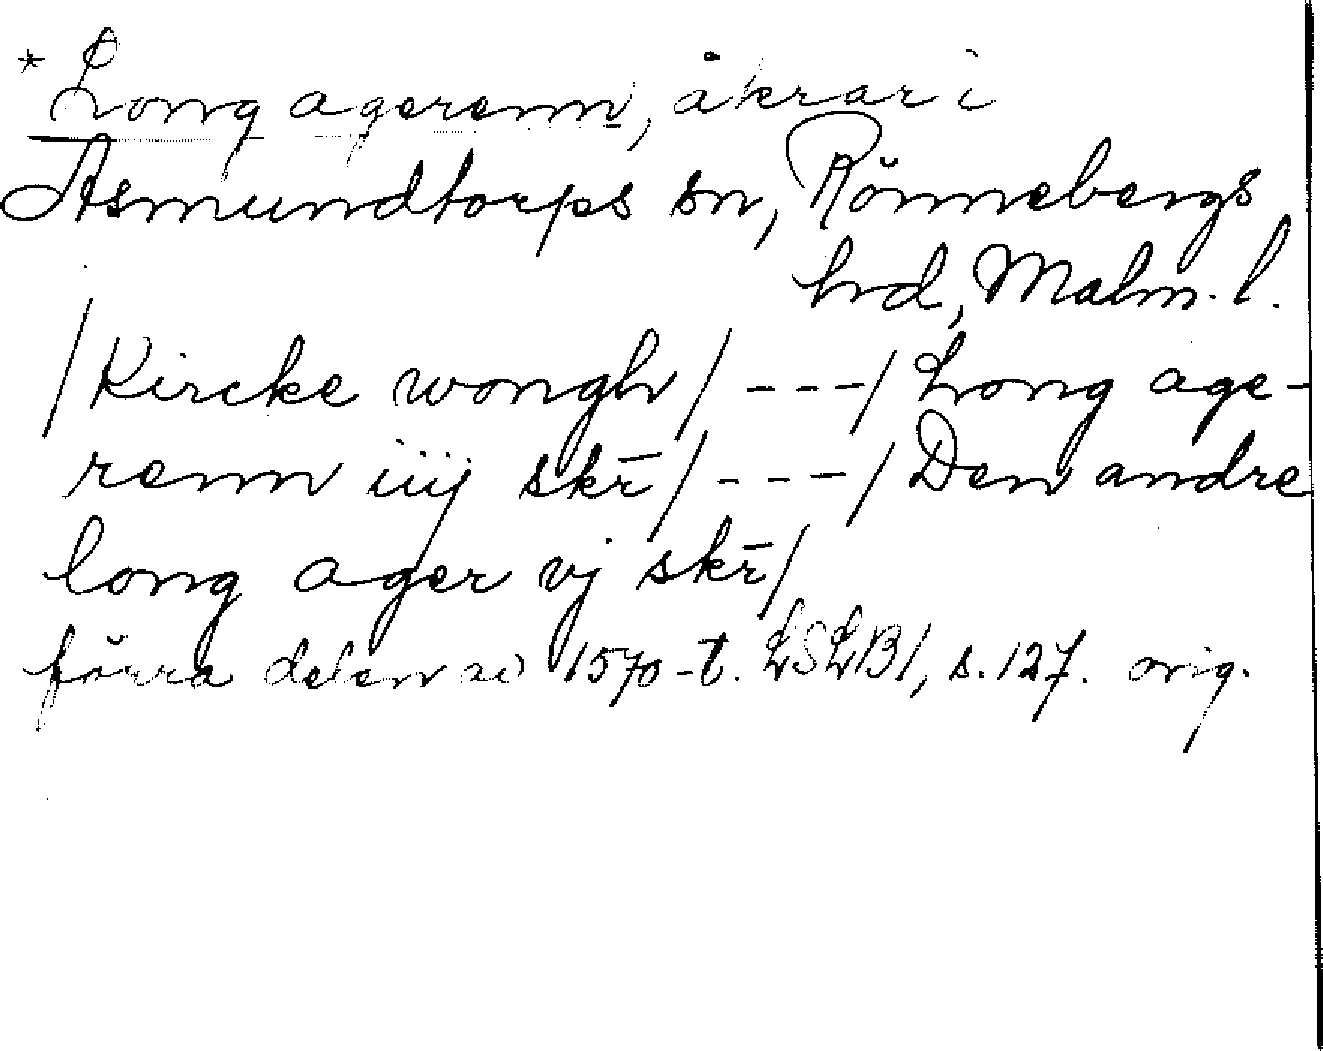 * Long agerenn, åkrar i
Asmundtorps sn, Rönnebergs
hd, Malm. l.
/ Kircke wongh / - - - / Long age-
renn iiij skr̄ / - - - / Den andre
long ager vj skr̄ /
förra delen av 1570-t. LSLB1, s. 127. orig.